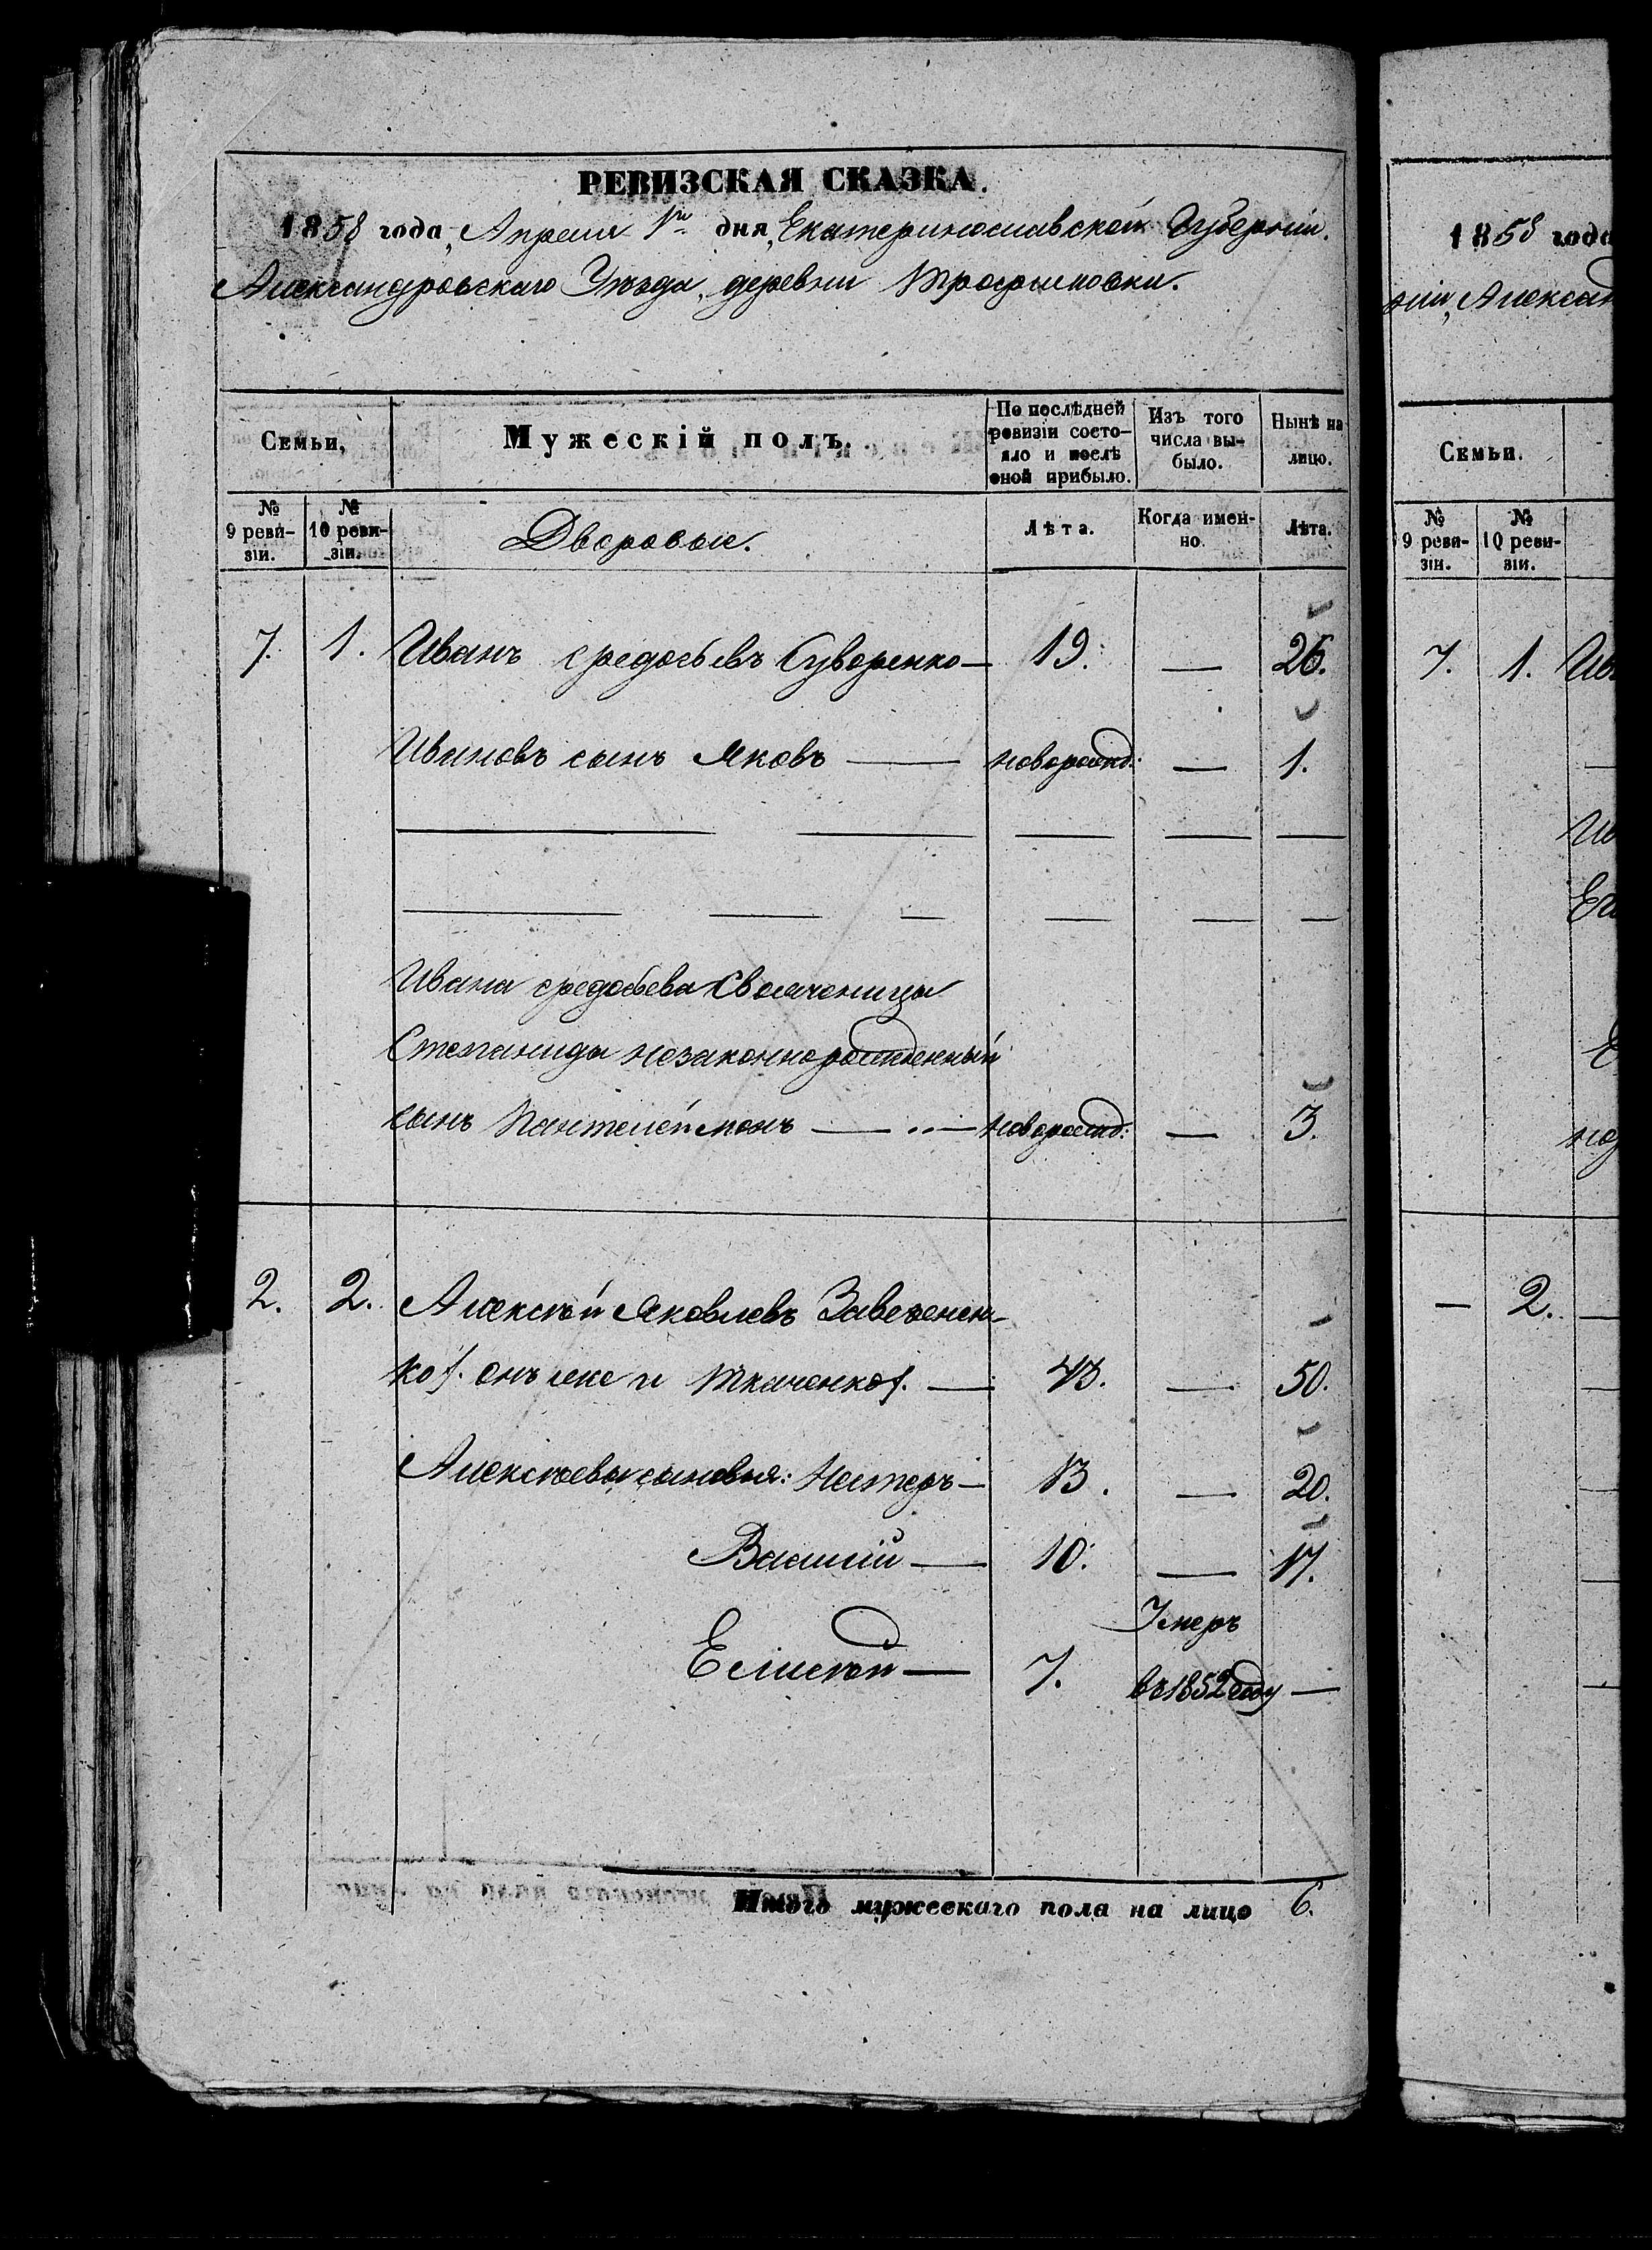 РЕВИЗСКАЯ СКАЗКА.
1858 года, Апреля 1го дня, Екатеринославской Губернiи.
Александровскаго Уѣзда, деревни Трофимовки.
Семьи,
Мужескiй полъ.
По послѣдней ревизiи состояло и послѣ оной прибыло.
Изъ того числа выбыло.
Нынѣ на лицо.
№ 9 ревизiи.
№ 10 ревизiи.
Дворовые.
Лѣта.
Когда именно.
Лѣта.
7. 1. Иванъ Федосѣевъ Суворенко — 19. — 26.
Ивановъ сынъ Яковъ — новорожд: — 1.
Ивана Федосѣева Свояченицы
Степаниды незаконнорожденный
сынъ Пантелеймонъ — новорожд: — 3.
2. 2. Алексѣй Яковлевъ
ко/. онъ же и Ткаченко/. — 43. — 50.
Алексѣевы сыновья: Нестеръ — 13. — 20.
Василiй — 10. — 17.
Умеръ
Елисѣй — 7. въ 1852 году —
Итого мужескаго пола на лицо 6.
1858 года
нiи, Алексан
Семьи.
№ 9 ревизiи.
№ 10 ревизiи.
7. 1. Ив
Ив
Е
— 2. —